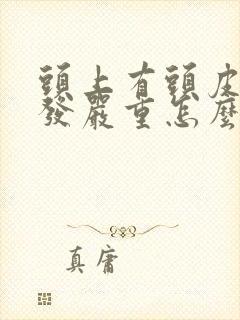 頭上有頭皮
發嚴重怎麼
真庸